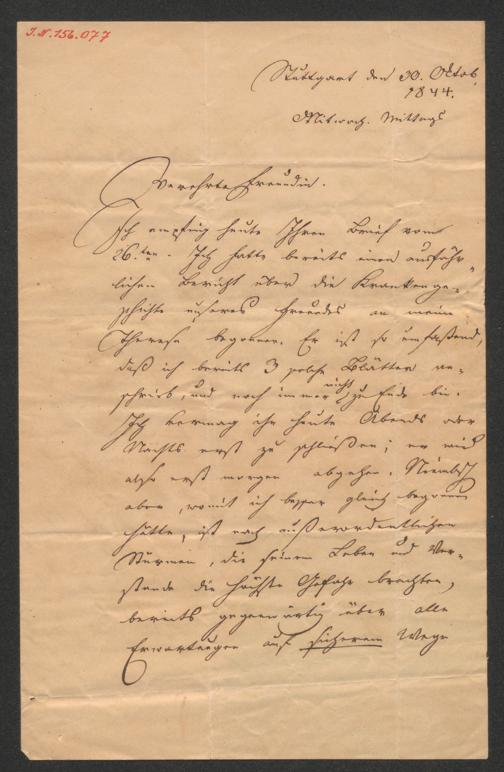 I.N.156.077
Stuttgart den 30. Oktob.
1844.
Mittwoch. Mittags
Verehrte Freundin.
Ich empfing heute Ihren Brief vom
26.ten. Ich hatte bereits einen ausführ-
lichen Bericht über die Krankenge-
schichte unseres Freundes an meine
Therese begonnen. Er ist so umfassend,
daß ich bereits 3 solche Blätter
schrieb, und noch immer nicht zu Ende bin.
Ich vermag ihn heute Abends oder
Nachts erst zu schließen; er wird
also erst morgen abgehen. Niembsch
aber, womit ich besser gleich begonnen
hätte, ist nach außerordentlichen
Stürmen, die seinem Leben und Ver-
stande die höchste Gefahr brachten,
bereits gegenwärtig über alle
Erwartungen auf sicherem Wege